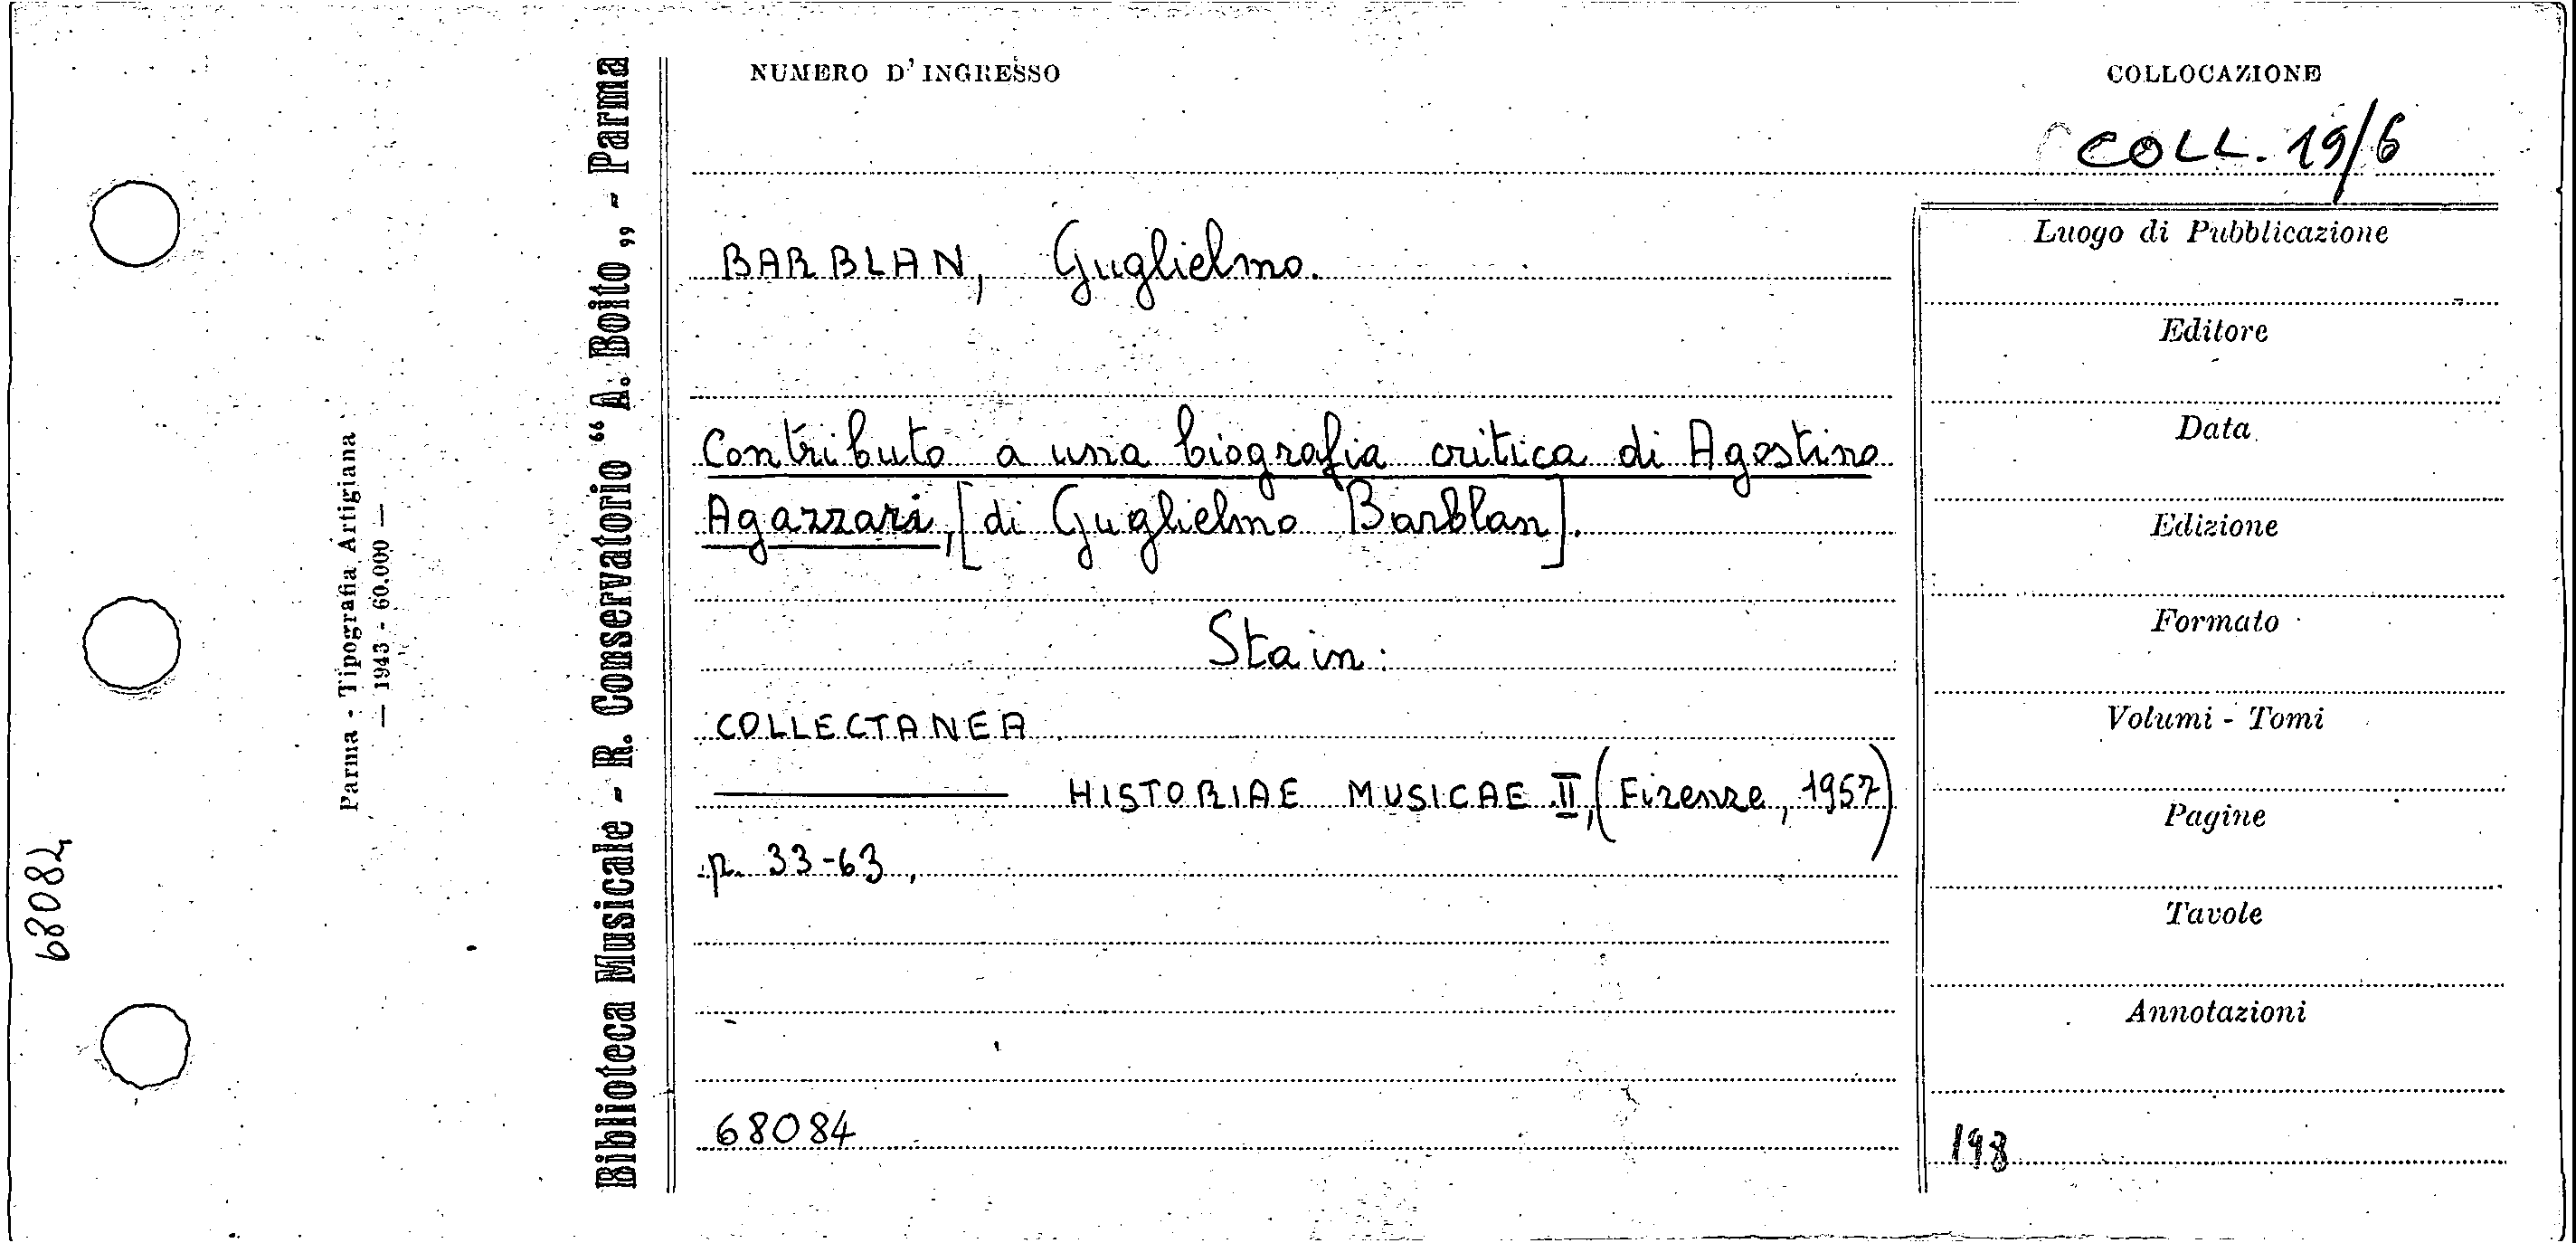 NUMERO D'INGRESSO
COLLOCAZIONE
COLL. 19/6
BARBLAN, Guglielmo.
Contributo a una biografia critica di Agostino
Agazzari, [di Guglielmo Barblan].
Sta in:
COLLECTANEA
HISTORIAE MUSICAE II, (Firenze, 1957)
p. 33-63,
68084
Luogo di Pubblicazione
Editore
Data
Edizione
Formato
Volumi - Tomi
Pagine
Tavole
Annotazioni
198
Biblioteca Musicale - R. Conservatorio “A. Boito„ - Parma
Parma - Tipografia Artigiana
— 1943 - 60.000 —
68082